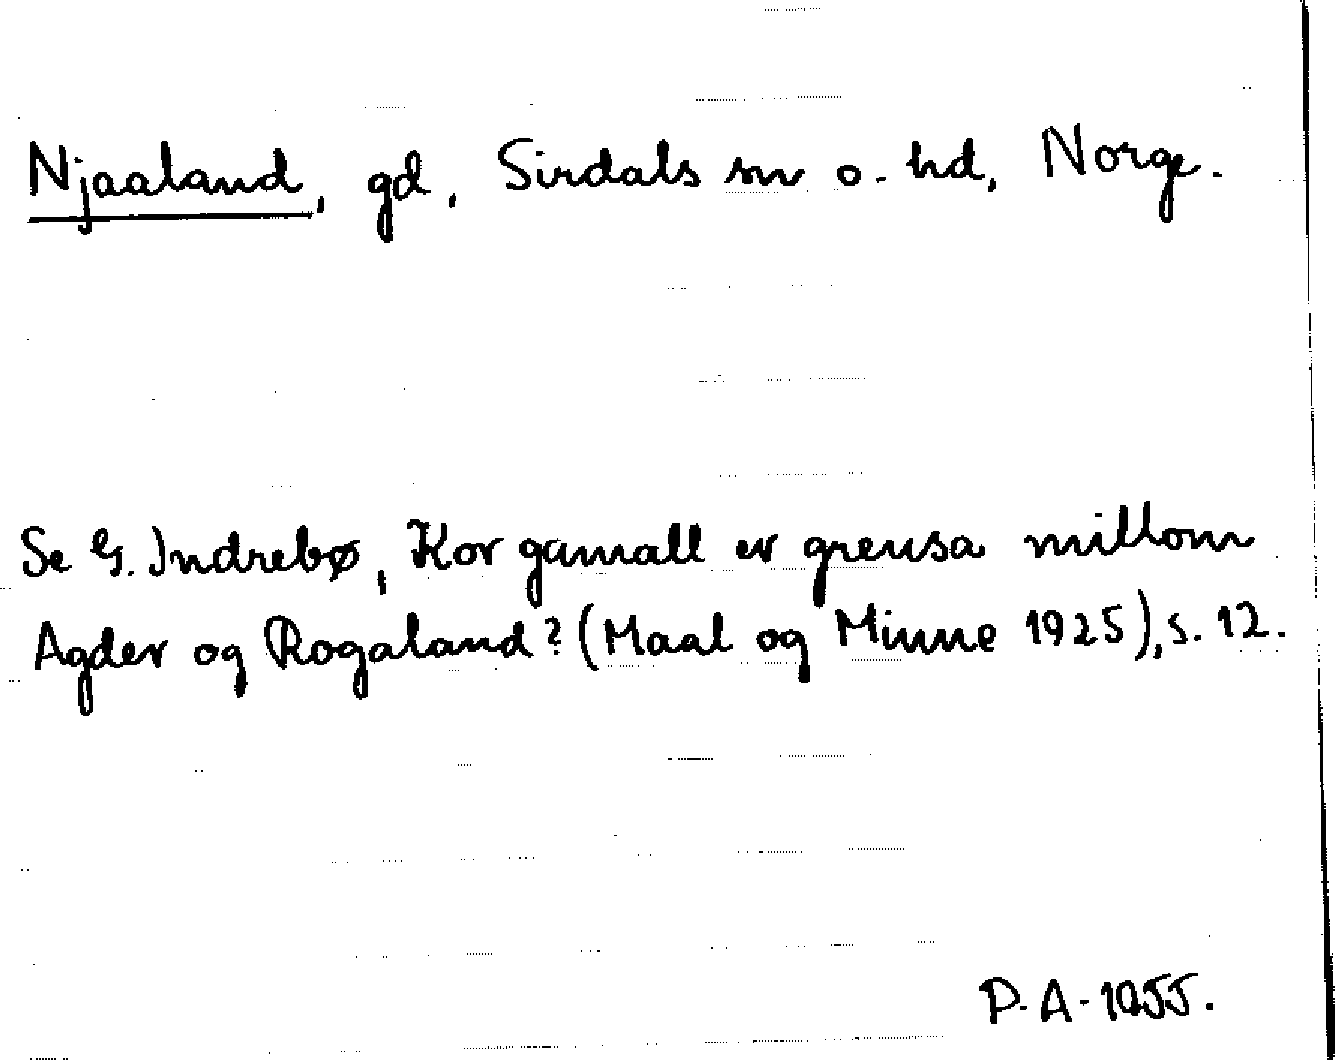 Njaaland, gd, Sirdals sn o. hd, Norge.
Se G. Indrebø, Kor gamall er grensa millom
Agder og Rogaland? (Maal og Minne 1925), s. 12.
P. A. 1955.